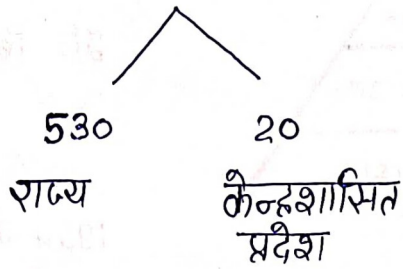 530 20
राज्य केन्द्रशासित
प्रदेश